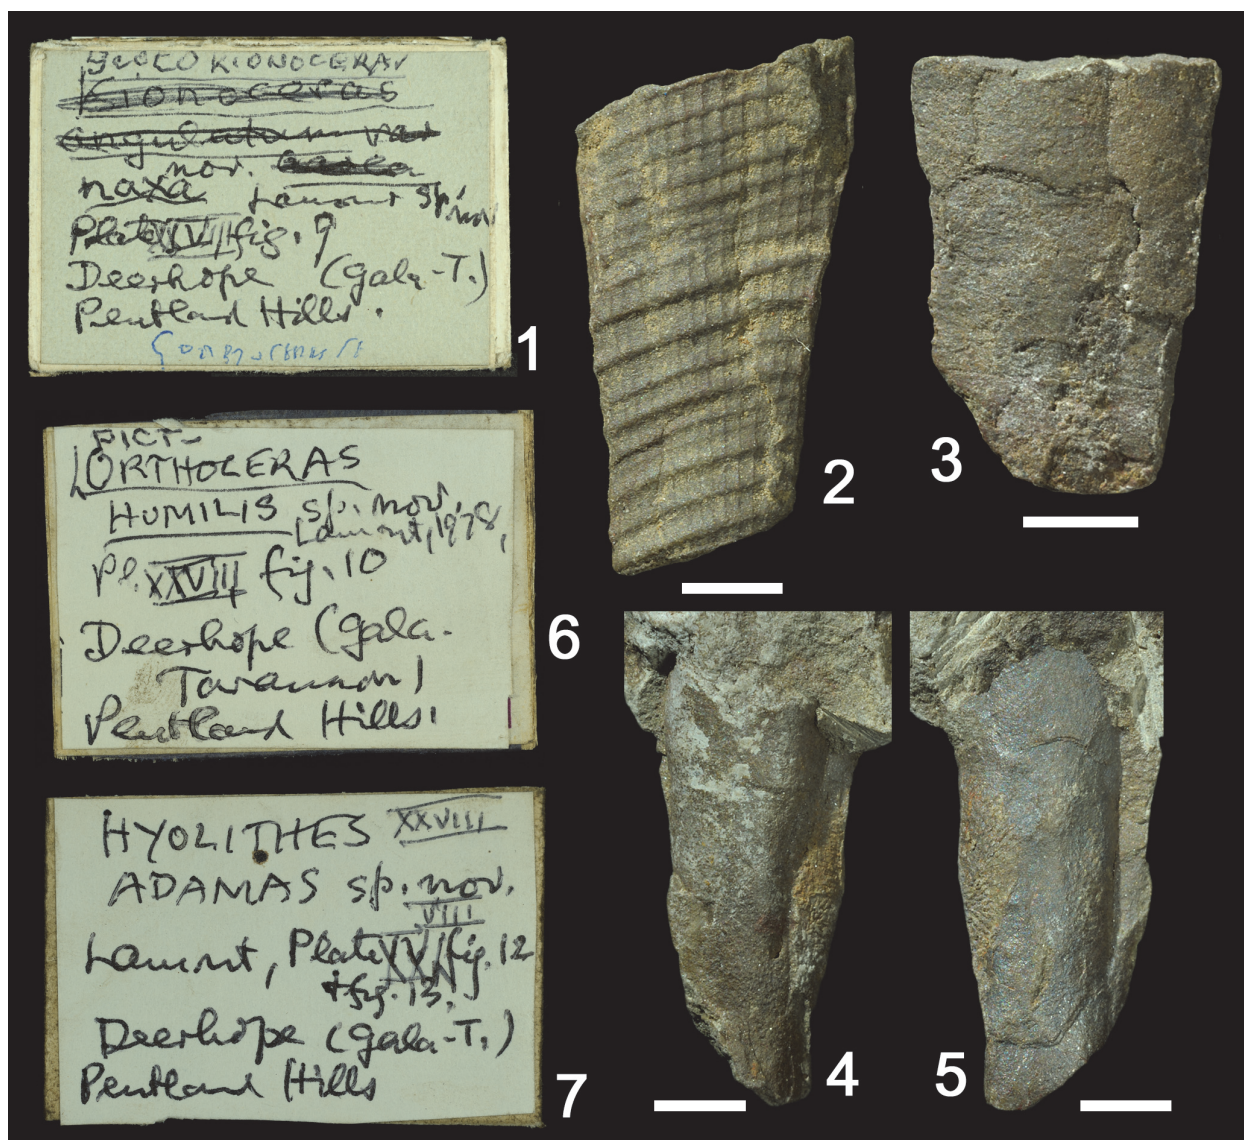 Kionoceras
angulatum var
nov.
naxa Lamont sp. nov
Plate XXVIII fig. 9
Deerhope (Gala-T.)
Pentland Hills.
1
2
3
PICT-
ORTHOCERAS
HUMILIS sp. nov.
Lamont, 1978,
Pl. XXVIII fig. 10
Deerhope (Gala-
Tarannon)
Pentland Hills.
6
HYOLITHES XXVIII
ADAMAS sp. nov.
VIII
Lamont, Plate fig. 12
+ fig. 13.
Deerhope (Gala-T.)
Pentland Hills
7
4
5